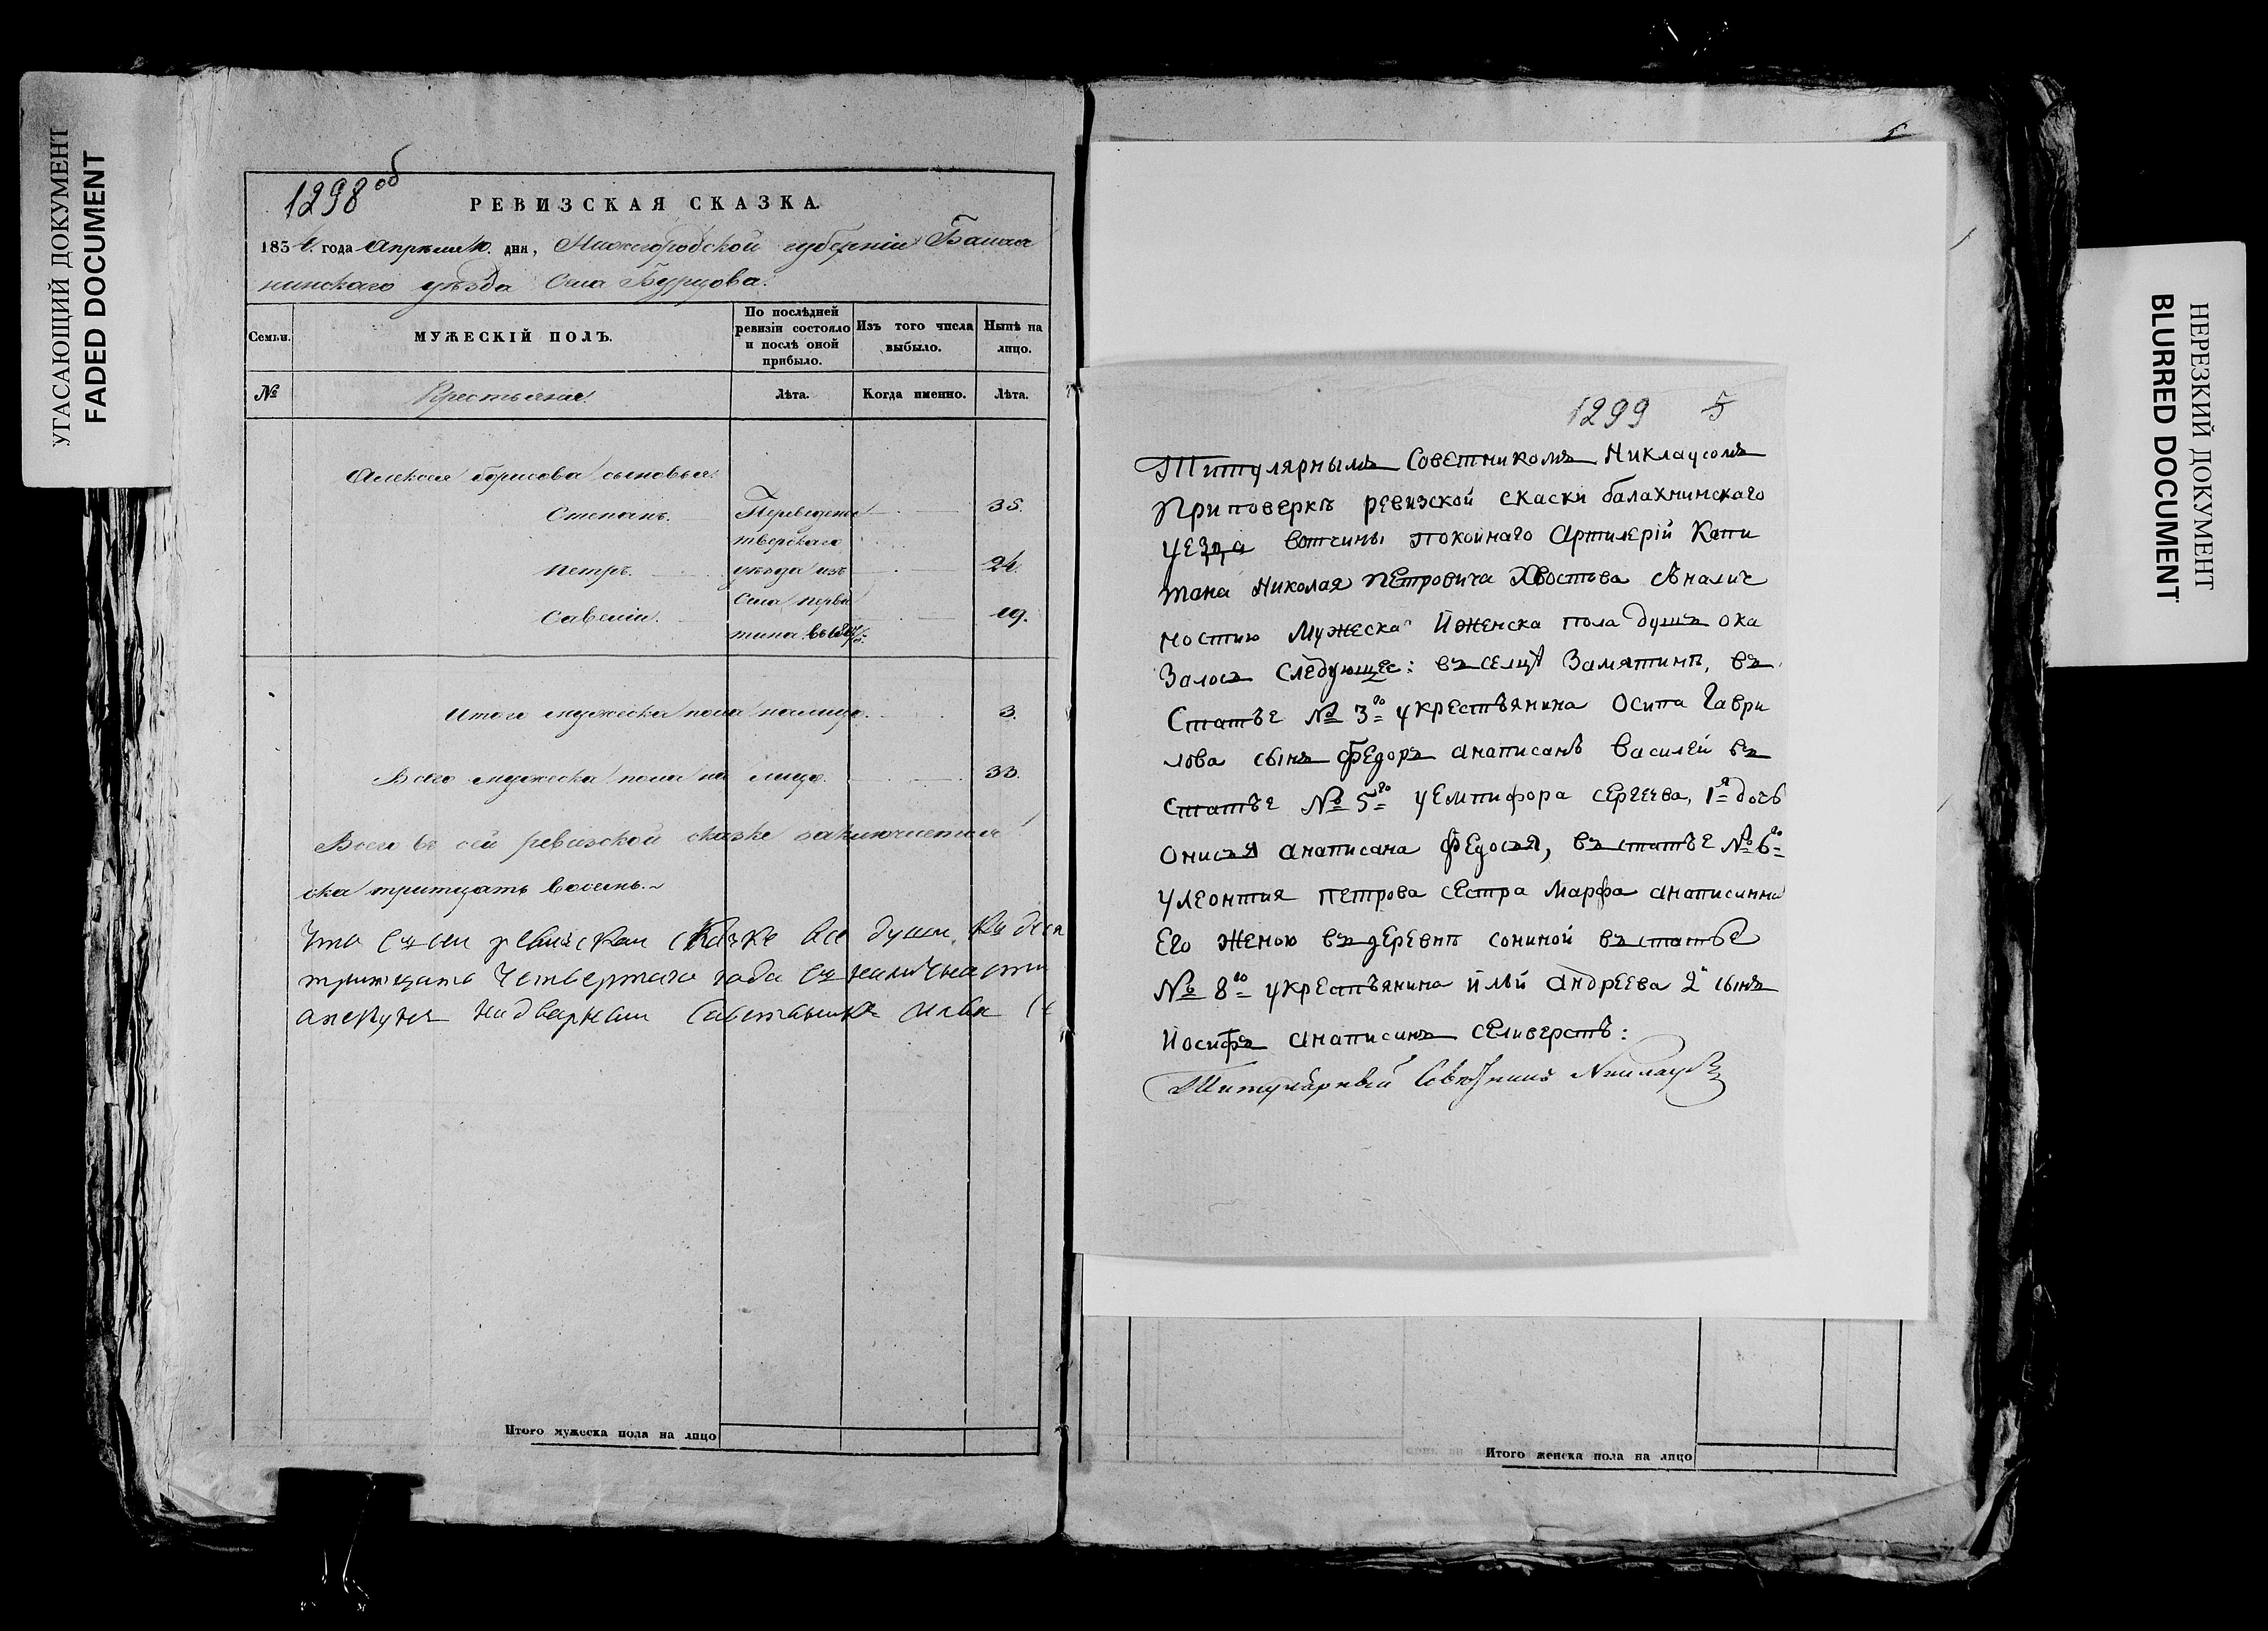 УГАСАЮЩИЙ ДОКУМЕНТ
FADED DOCUMENT
1298 об
РЕВИЗСКАЯ СКАЗКА.
1834. года Апреля 10. дня, Нижегородской губерніи Балах
нинскаго уѣзда Села Бурцова.
Семьи.
МУЖЕСКІЙ ПОЛЪ.
По послѣдней ревизіи состояло и послѣ оной прибыло.
Изъ того числа выбыло.
Нынѣ на лицо.
№
Крестьяне.
Лѣта.
Когда именно.
Лѣта.
Алексея борисова сыновья:
Степанъ. Переведены 35.
тверскаго
Петръ. уѣзда изъ 24.
Села перви
Савелій. 19.
тина въ
Итого мужеска пола налицо. 3.
Всего мужеска пола на лицо. 33.
Всего въ сей ревизской сказке заключается
ска тритцать восемь.~
Что въ сей ревиской скаске все души къ
тритцать четвертаго года
надворнай Саветникъ
Итого мужеска пола на лицо
1299 5
Титулярнымъ Советникомъ Никлаусомъ
При поверкѣ ревизской скаски балахнинскаго
уезда вотчины покойнаго Артилерій Капи
тана Николая Петровича Хвостова сналич
ностию Мужеска Йженска пола душъ ока
Залось Следующее: въ селцѣ Замятинѣ, въ
Статье № 3го укрестьянина Осипа Гаври
лова сынъ Федоръ анаписанъ Василей въ
Статье № 5го уемпифора сергеева, 1я дочь
Онисья анаписана Федосья, въ статье № 6го
Улеонтия петрова сестра Марфа анаписанна
Его женою въ деревнѣ сониной въ статье
№ 8го укрестьянина Ильй андреева 2й сынъ
Иосифъ анаписинъ селиверстъ:
Титулярный Советникъ Никлаусъ
Итого женска пола на лицо
НЕРЕЗКИЙ ДОКУМЕНТ
BLURRED DOCUMENT